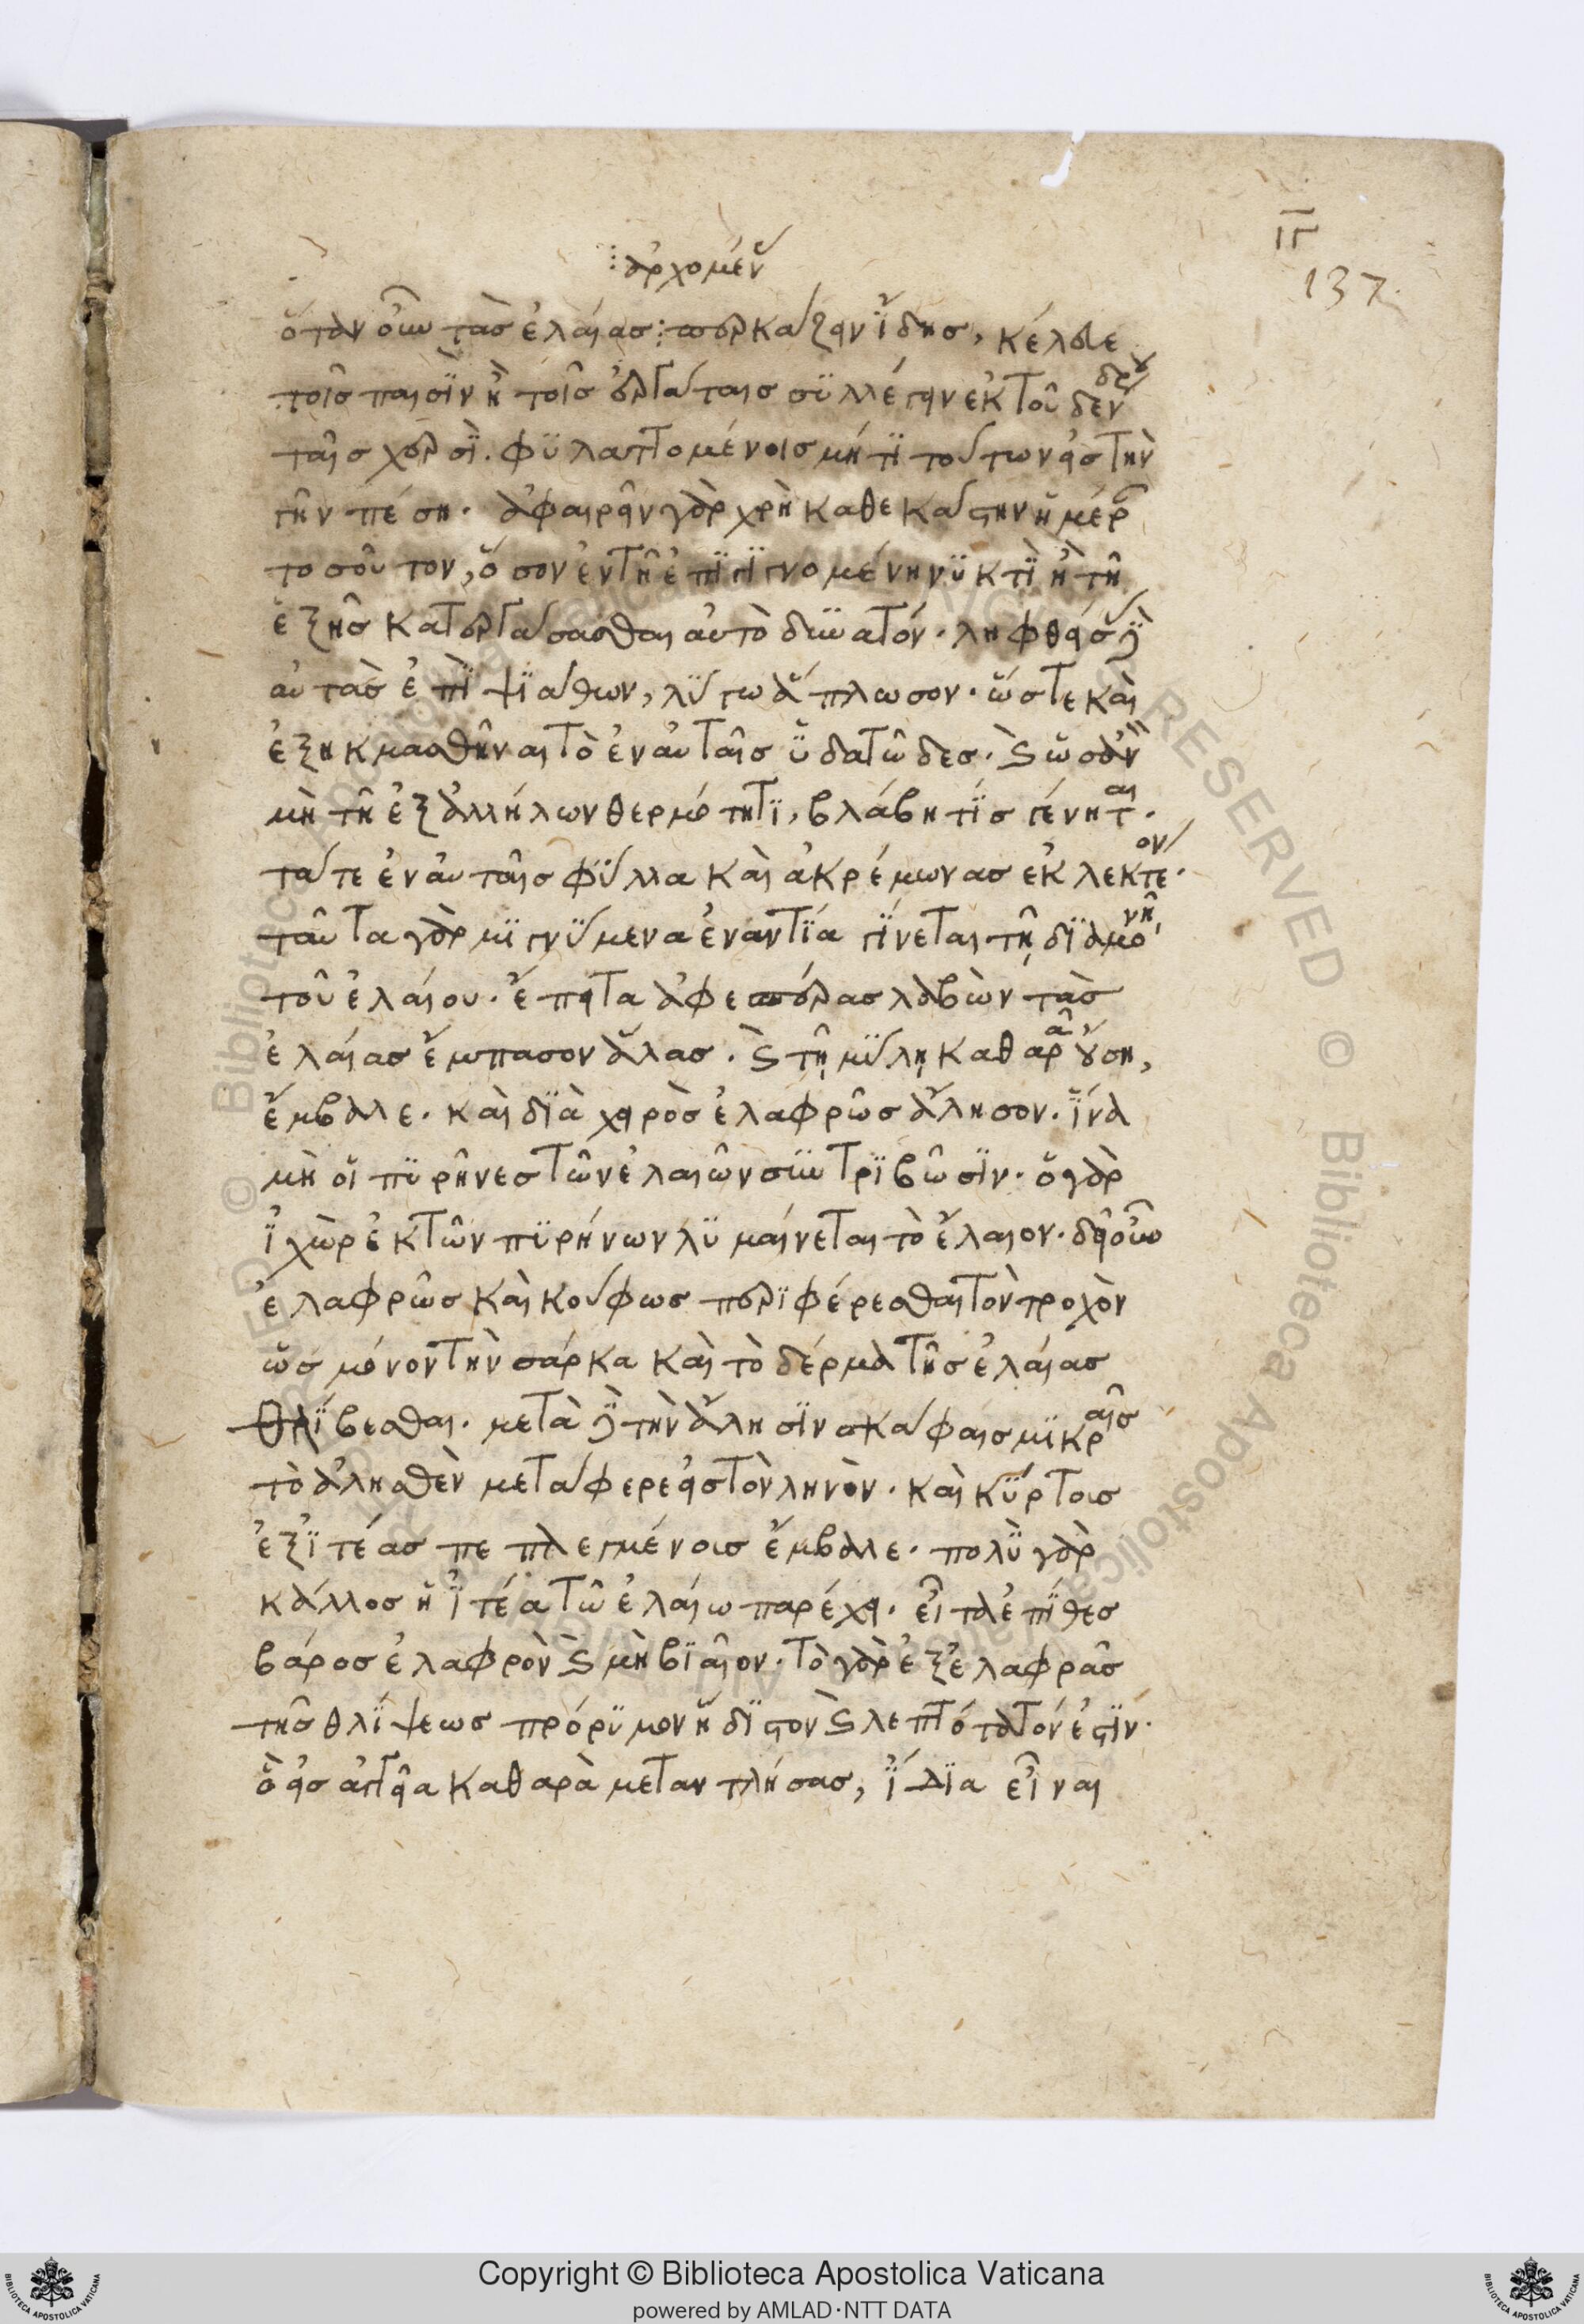 ιγ
137
ἀρχομένου
ὅταν οὖν τὰς ἐλαίας περκάζειν ἴδης, κέλευε
τοῖς παισὶν ἢ τοῖς ἐργάταις συλλέγειν ἐκ τοῦ δένδρου
ταῖς χερσί. φυλαττομένοις μήτι τούτων εἰς τὴν
γῆν πέση. ἀφαιρεῖν γὰρ χρὴ καθεκάστην ἡμέραν
τοσοῦτον, ὅσον ἐν τῆ ἐπιγιγνομένη νυκτὶ ἢ τῆ
ἑξῆς κατεργάσασθαι αὐτὸ δυνατόν. ληφθείσας δὲ
αὐτὰς ἐπὶ ψιάθων, λύγω ἅπλωσον. ὥστε καὶ
ἐξηκμασθῆναι τὸ ἐν αὐταῖς ὑδατῶδες. καὶ ὡς ἂν
μὴ τῆ ἐξ ἀλλήλων θερμότητι, βλάβη τίς γένηται.
τά τε ἐν αὐταῖς φύλλα καὶ ἀκρέμωνας ἐκλεκτέον.
ταῦτα γὰρ μιγνύμενα ἐναντία γίνεται τῆ διαμονῆ
τοῦ ἐλαίου. ἔπειτα ἀφεσπέρας λαβὼν τὰς
ἐλαίας ἔμπασον ἅλας. καὶ τῆ μύλη καθαρᾶ οὔση,
ἔμβαλε. καὶ διὰ χειρὸς ἐλαφρῶς ἄλησον. ἵνα
μὴ οἱ πυρῆνες τῶν ἐλαιῶν συντριβῶσιν. ὁ γὰρ
ἰχὼρ ἐκ τῶν πυρήνων λυμαίνεται τὸ ἔλαιον. δεῖ οὖν
ἐλαφρῶς καὶ κούφως περιφέρεσθαι τὸν τροχὸν
ὡς μόνον τὴν σάρκα καὶ τὸ δέρμα τῆς ἐλαίας
θλίβεσθαι. μετὰ δὲ τὴν ἄλησιν σκάφαις μικραῖς
τὸ ἀλησθὲν μετάφερε εἰς τὸν ληνὸν. καὶ κύρτοις
ἐξ ἰτέας πεπλεγμένοις ἔμβαλε. πολὺ γὰρ
κάλλος ἡ ἰτέα τῶ ἐλαίω παρέχει. εἶτα ἐπίθες
βάρος ἐλαφρὸν καὶ μὴ βίαιον. τὸ γὰρ ἐξ ἐλαφρᾶς
τῆς θλίψεως πρόρυμον ἥδιστον καὶ λεπτότατόν ἐστιν.
ὃ εἰς ἀγγεῖα καθαρὰ μεταντλήσας, ἴδια εἶναι
Copyright © Biblioteca Apostolica Vaticana
powered by AMLAD·NTT DATA